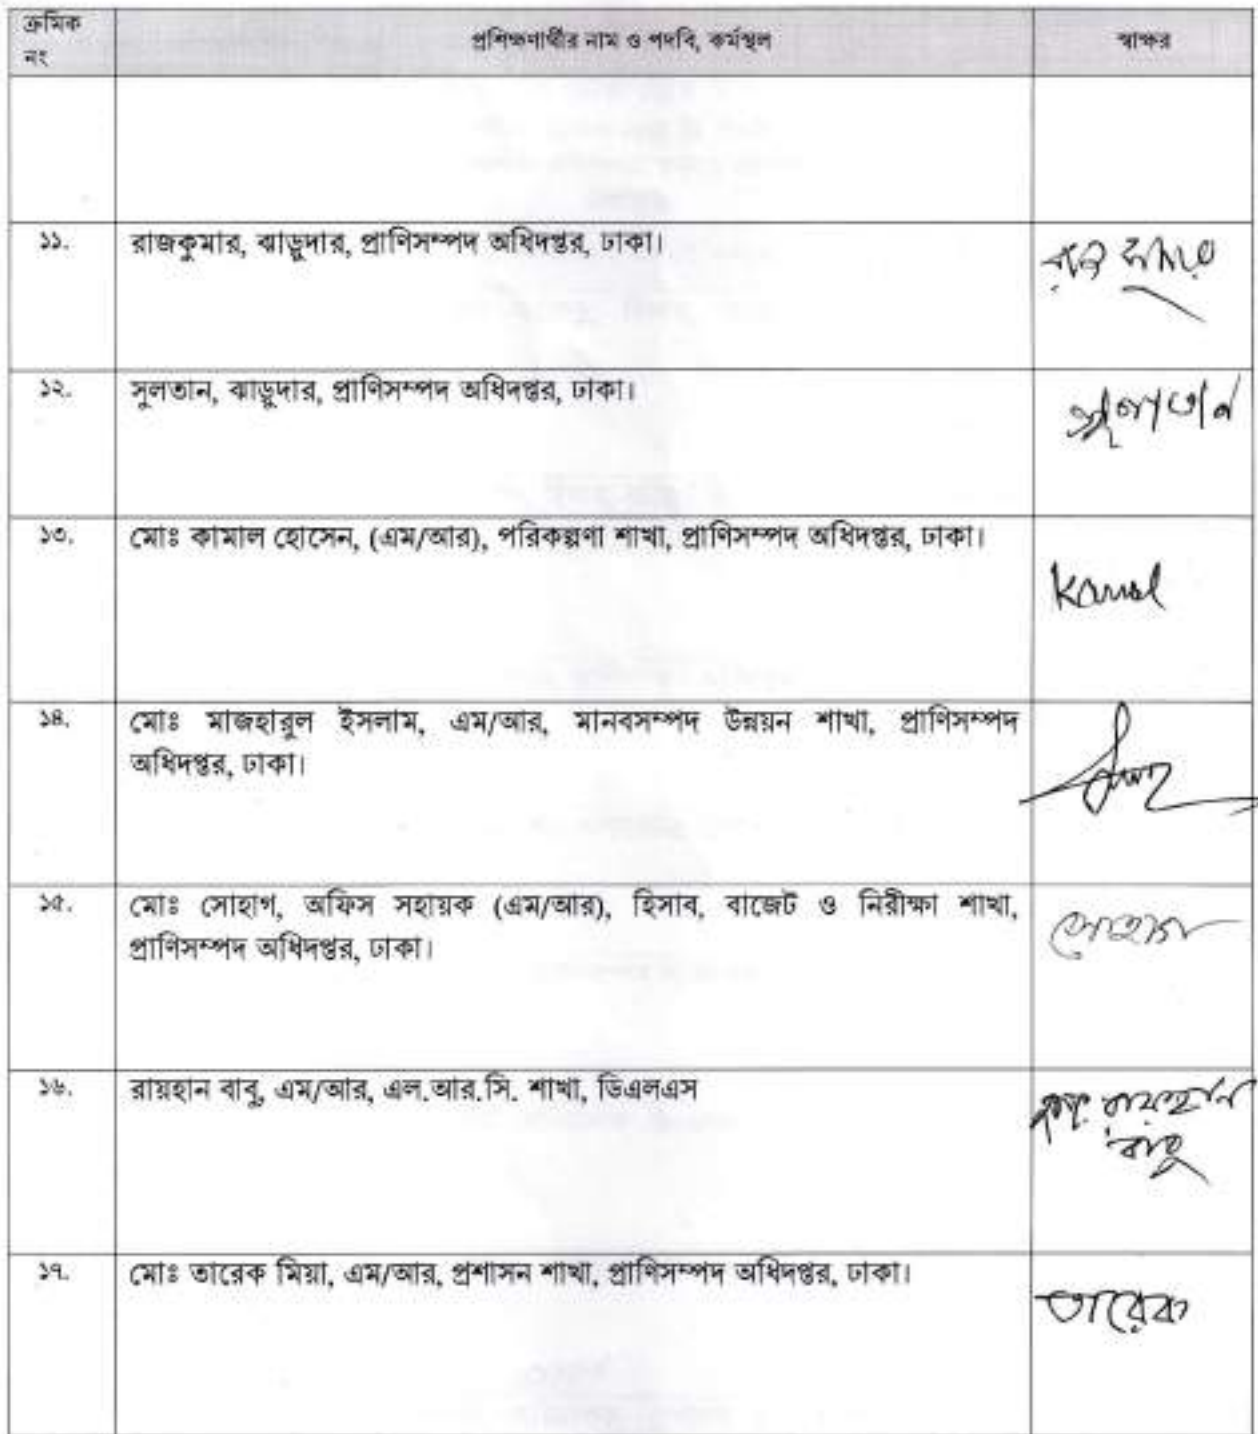 ক্রমিক
নং
প্রশিক্ষণার্থীর নাম ও পদবি, কর্মস্থল
স্বাক্ষর
১১.
রাজকুমার, ঝাড়ুদার, প্রাণিসম্পদ অধিদপ্তর, ঢাকা।
১২.
সুলতান, ঝাড়ুদার, প্রাণিসম্পদ অধিদপ্তর, ঢাকা।
সুলতান
১৩.
মোঃ কামাল হোসেন, (এম/আর), পরিকল্পণা শাখা, প্রাণিসম্পদ অধিদপ্তর, ঢাকা।
Kamal
১৪.
মোঃ মাজহারুল ইসলাম, এম/আর, মানবসম্পদ উন্নয়ন শাখা, প্রাণিসম্পদ
অধিদপ্তর, ঢাকা।
১৫.
মোঃ সোহাগ, অফিস সহায়ক (এম/আর), হিসাব, বাজেট ও নিরীক্ষা শাখা,
প্রাণিসম্পদ অধিদপ্তর, ঢাকা।
সোহাগ
১৬.
রায়হান বাবু, এম/আর, এল.আর.সি. শাখা, ডিএলএস
রায়হান
বাবু
১৭.
মোঃ তারেক মিয়া, এম/আর, প্রশাসন শাখা, প্রাণিসম্পদ অধিদপ্তর, ঢাকা।
তারেক